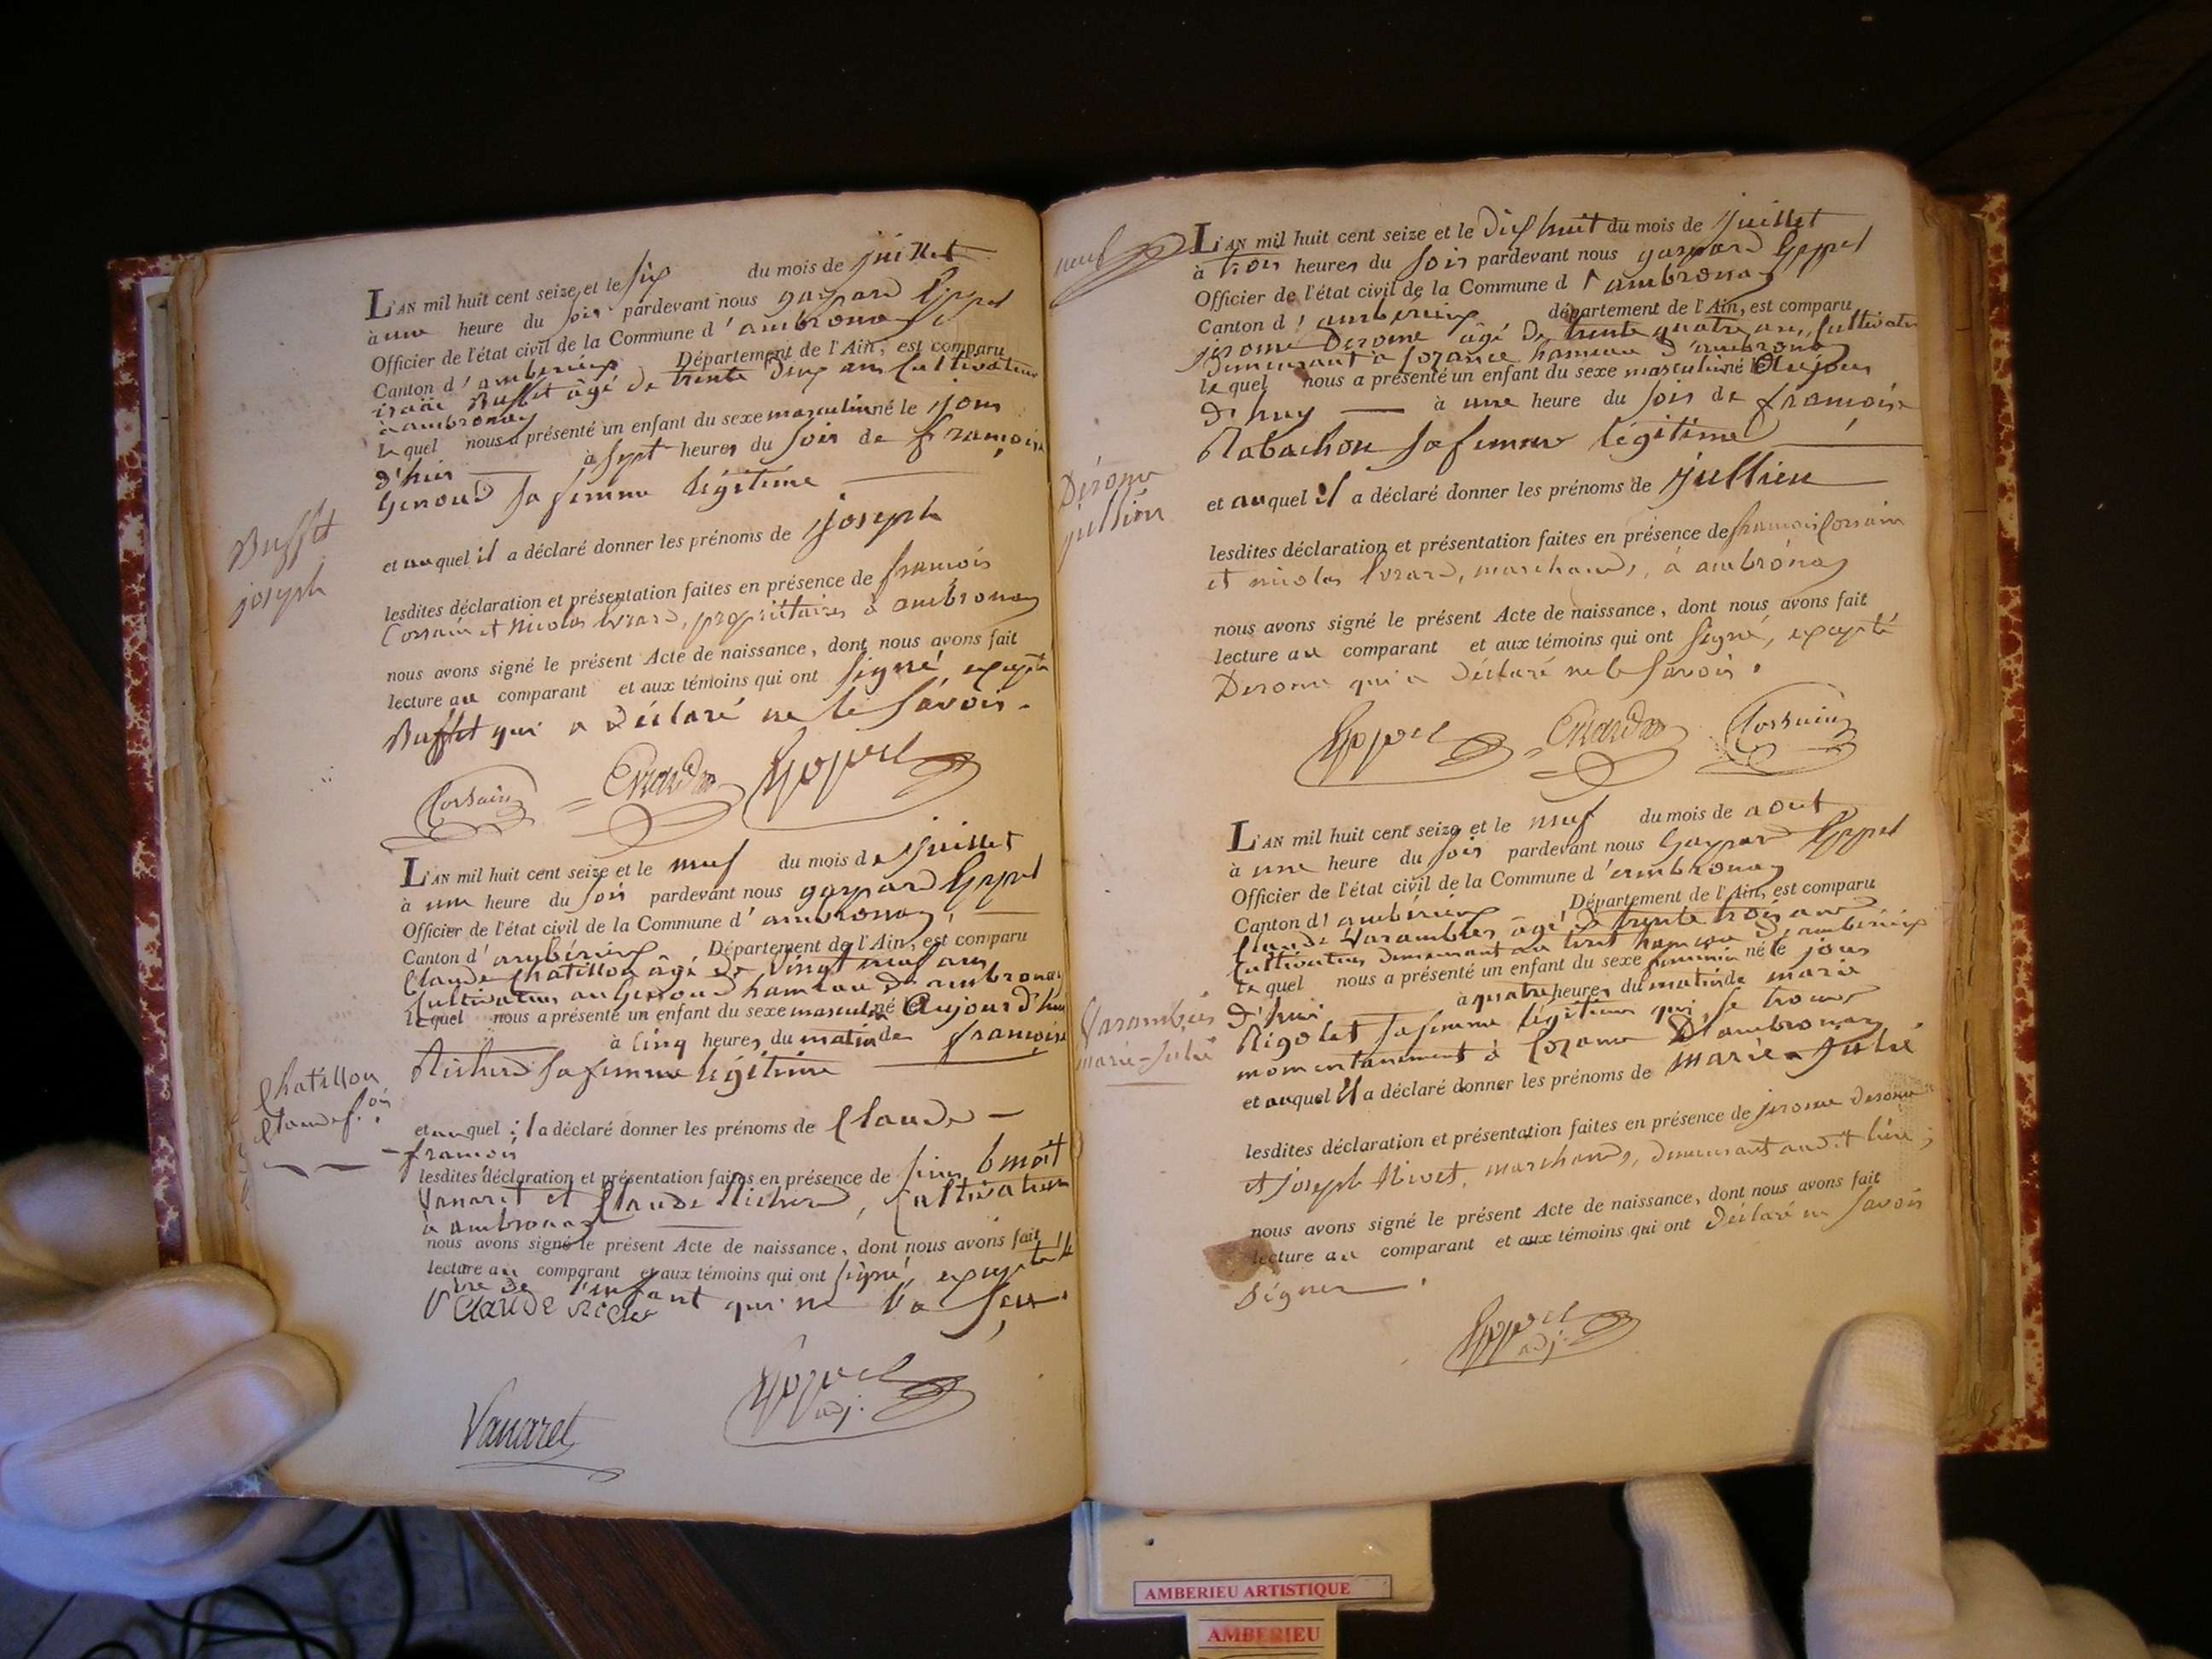 L'AN mil huit cent seize, et le six du mois de juillet
à une heure du soir pardevant nous gaspard Goppel
Officier de l'état civil de la Commune d'ambronay,
Canton d'ambérieux Département de l'Ain, est comparu
Buffet âgé de trente deux ans Cultivateur
à ambronay
Le quel nous a présenté un enfant du sexe masculin né le jour
d'hier à sept heures du soir de françoise
Genoud sa femme légitime
Buffet
joseph
et auquel il a déclaré donner les prénoms de joseph
lesdites déclaration et présentation faites en présence de françois
Corsain et Nicolas Evrard, propriétaires à ambronay
nous avons signé le présent Acte de naissance, dont nous avons fait
lecture au comparant et aux témoins qui ont signé, excepté
Buffet qui a déclaré ne le savoir.
Corsain Evrard Goppel
L'AN mil huit cent seize et le neuf du mois de juillet
à une heure du soir pardevant nous gaspard Goppel
Officier de l'état civil de la Commune d'ambronay,
Canton d'ambérieux Département de l'Ain, est comparu
Claude Chatillon âgé de vingt neuf ans
Cultivateur au Genoud hameau d'ambronay
Le quel nous a présenté un enfant du sexe masculin né le aujourd'hui
à cinq heures du matin de françoise
Richerd sa femme légitime
Chatillon
Claude f.ois
et auquel il a déclaré donner les prénoms de Claude -
- françois
lesdites déclaration et présentation faites en présence de benoît
Vanaret et Claude Richerd, Cultivateurs
à ambronay
nous avons signé le présent Acte de naissance, dont nous avons fait
lecture au comparant et aux témoins qui ont signé, excepté le
père de l'enfant qui ne l'a seu.
Claude
Vanaret Goppel adj.
neuf
L'AN mil huit cent seize et le dix huit du mois de juillet
à trois heures du soir pardevant nous gaspard Goppel
Officier de l'état civil de la Commune d'ambronay
Canton d'ambérieux département de l'Ain, est comparu
jerome Derome âgé de trente quatre ans, Cultivateur
Demeurant à Cozance hameau d'ambronay
le quel nous a présenté un enfant du sexe masculin né le aujour
d'huy à une heure du soir de françoise
Rabachon sa femme légitime
Dérome
jullien
et auquel il a déclaré donner les prénoms de jullien
lesdites déclaration et présentation faites en présence de françois Corsain
et nicolas Evrard, marchands, à ambronay
nous avons signé le présent Acte de naissance, dont nous avons fait
lecture au comparant et aux témoins qui ont signé, excepté
Derome qui a déclaré ne le savoir.
Goppel Evrard Corsain
L'AN mil huit cent seize et le neuf du mois de aout
à une heure du soir pardevant nous Gaspard Goppel
Officier de l'état civil de la Commune d'ambronay
Canton d'ambérieux Département de l'Ain, est comparu
Claude Varambles âgé de trente trois ans
Cultivateur demeurant au hameau d'ambérieux
Le quel nous a présenté un enfant du sexe féminin né le jour
d'hui à quatre heures du matin de marie
Rigolet sa femme légitime qui se trouve
momentanement à Cozance D'ambronay
marie-Julie
et auquel il a déclaré donner les prénoms de marie-Julie
lesdites déclaration et présentation faites en présence de jerome Derome
et joseph Nivet, marchands, demeurant audit lieu;
nous avons signé le présent Acte de naissance, dont nous avons fait
lecture au comparant et aux témoins qui ont déclaré ne savoir
signer.
Goppel adj.
AMBERIEU ARTISTIQUE
AMBERIEU